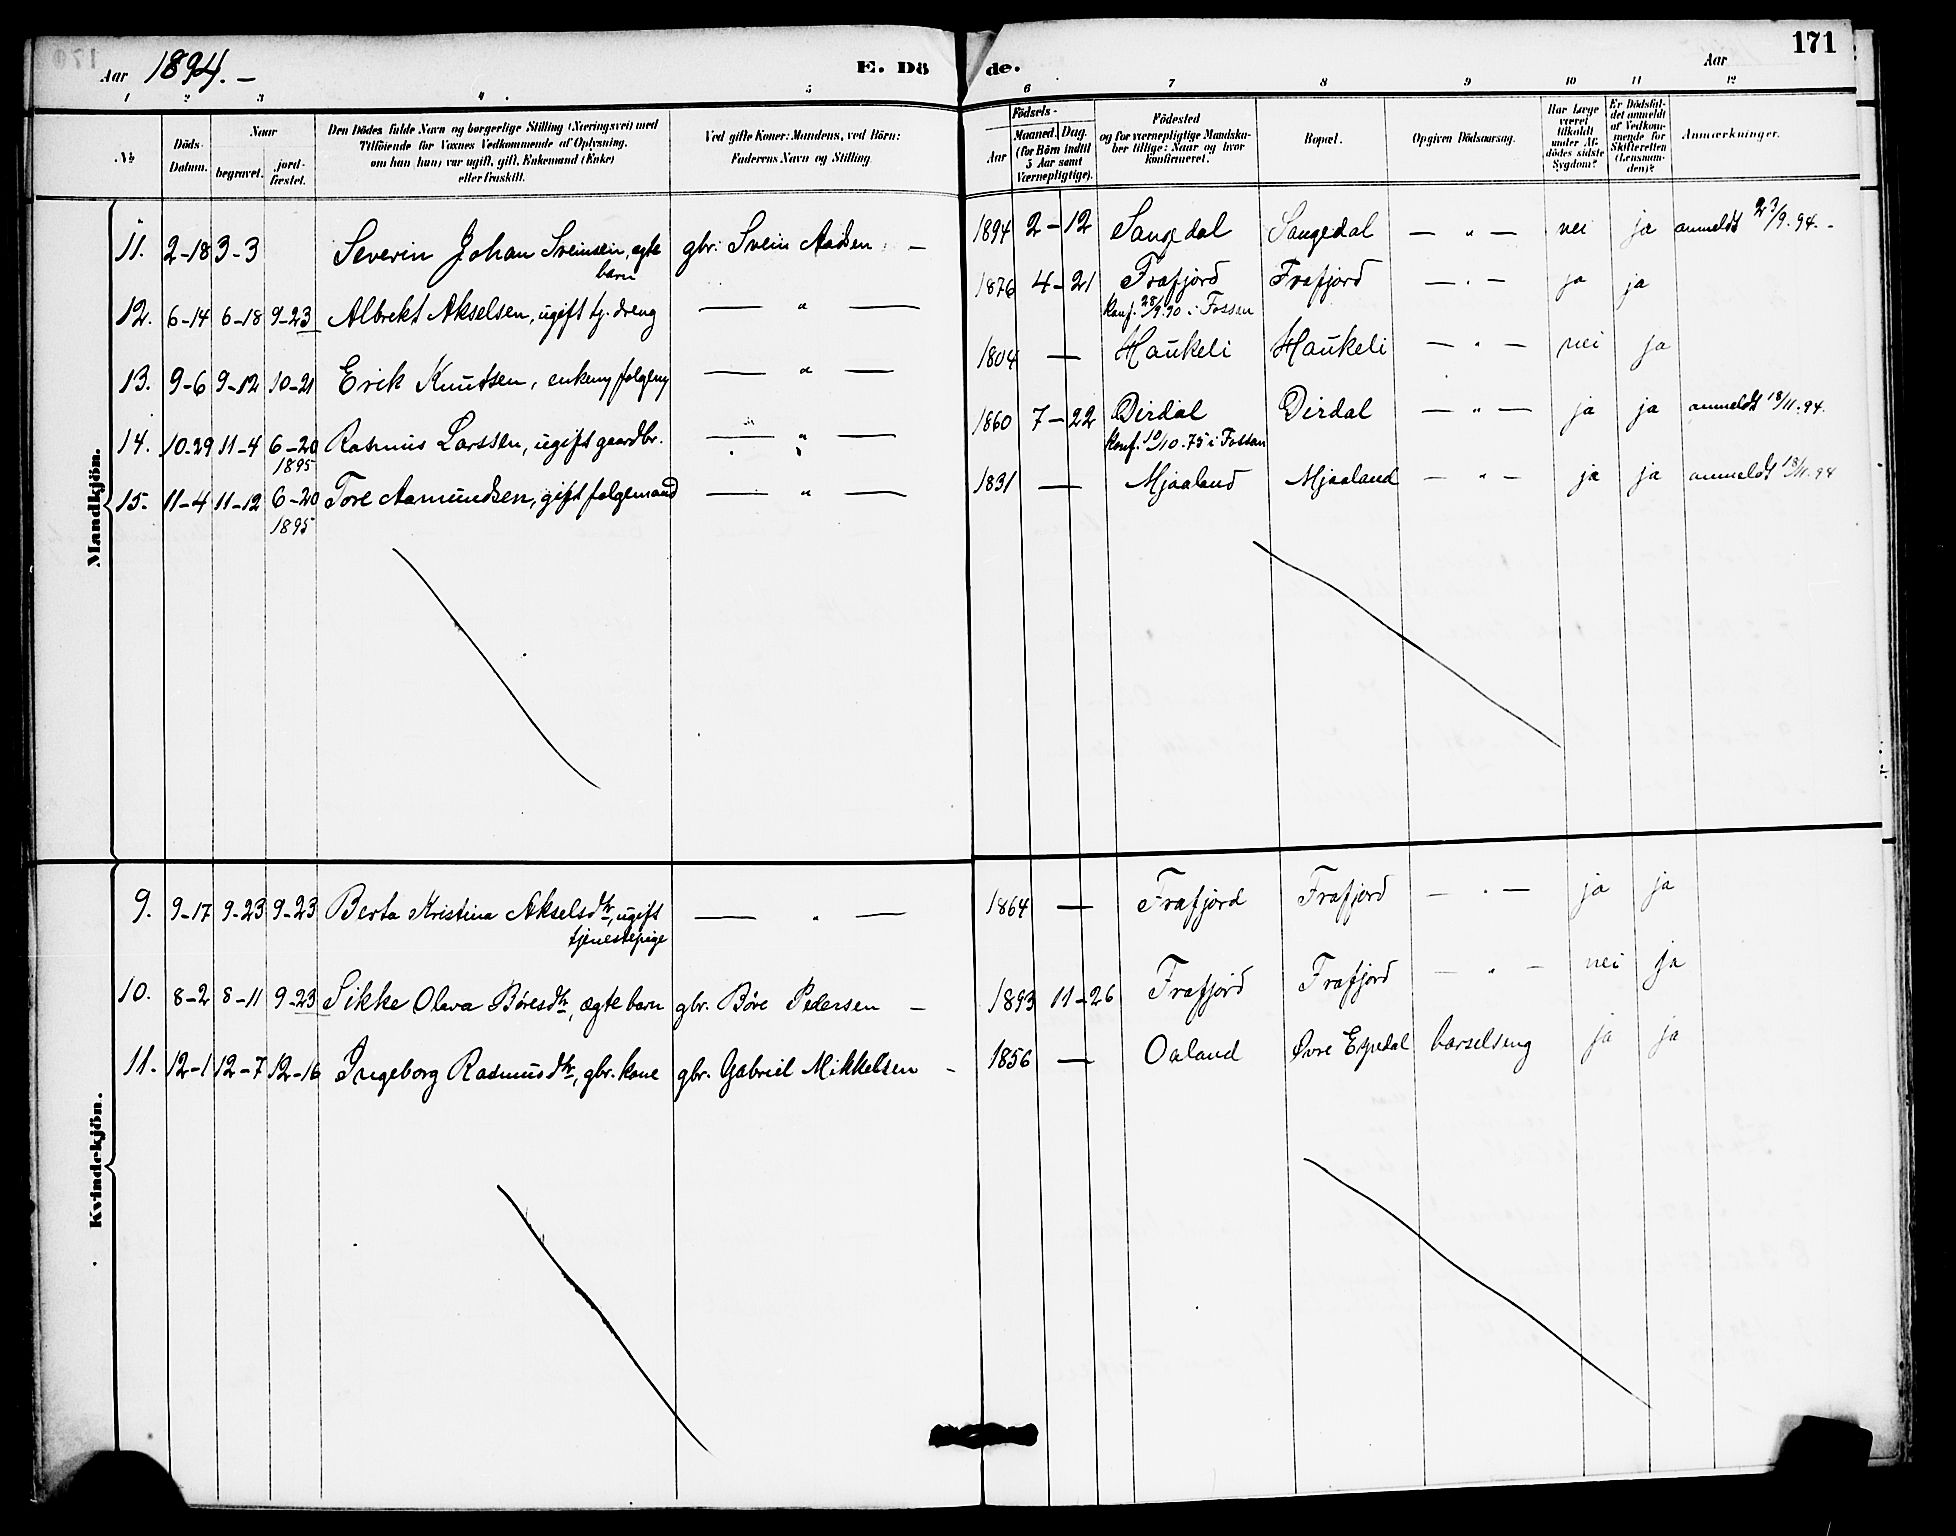 Aar 1894. –
E. Dö
de.
Aar
171
1 2 3 4 5 6 7 8 9 10 11 12
№
Döds-
Datum.
Naar
begravet.
jord-
fæstet.
Den Dödes fulde Navn og borgerlige Stilling (Næringsvei) med
Tilföiende for Voxnes Vedkommende af Oplysning,
om han (hun) var ugift, gift, Enkemand (Enke)
eller fraskilt.
Ved gifte Koner: Mandens, ved Börn:
Faderens Navn og Stilling.
Födsels-
Aar
Maaned. Dag.
(for Börn indtil
5 Aar samt
Værnepligtige).
Födested
og for værnepligtige Mandska-
ber tillige: Naar og hvor
konfirmeret.
Bopæl.
Opgiven Dödsaarsag.
Har Læge
været
tilkaldt
under Af-
dödes sidste
Sygdom?
Er Dödsfal-
det anmeldt
af Vedkom-
mende for
Skifteretten
(Lensman-
den)?
Anmærkninger.
Mandkjön.
11. 2–18 3–3 Severin Johan Sveinsen, egte barn gbr. Svein Aadsen – 1894 2–12 Sangedal Sangedal — „ — nei ja anmeldt 23/9.94. -
12. 6–14 6–18 9–23 Albrekt Akselsen, ugift tj. dreng — „ — 1876 4–21 Frafjord Frafjord — „ — ja ja
konf. 28/9.90 i Fossan
13. 9–6 9–12 10–21 Erik Knutsen, enkem, folgem — „ — 1804 — Haukeli Haukeli — „ — nei ja
14. 10.29 11–4 6–20 1895 Rasmus Larssen, ugift gaardbr. — „ — 1860 7–22 Dirdal Dirdal — „ — ja ja anmeldt 18/11.94.
konf. 10/10.75 i Fossan
15. 11–4 11–12 6–20 1895 Tore Aamundsen, gift folgemand — „ — 1831 — Mjaaland Mjaaland — „ — ja ja anmeldt 18/11.94
Kvindekjön.
9. 9–17 9–23 9–23 Berta Kristina Akselsdtr, ugift tjenestepige — „ — 1864 — Frafjord Frafjord — „ — ja ja
10. 8–2 8–11 9–23 Sikke Olava Børesdtr, ægte barn gbr. Børe Pedersen – 1893 11–26 Frafjord Frafjord — „ — nei ja
11. 12–1 12–7 12–16 Ingeborg Rasmusdtr, gbr. kone gbr. Gabriel Mikkelsen – 1856 — Oaland Øvre Espedal barselseng ja ja